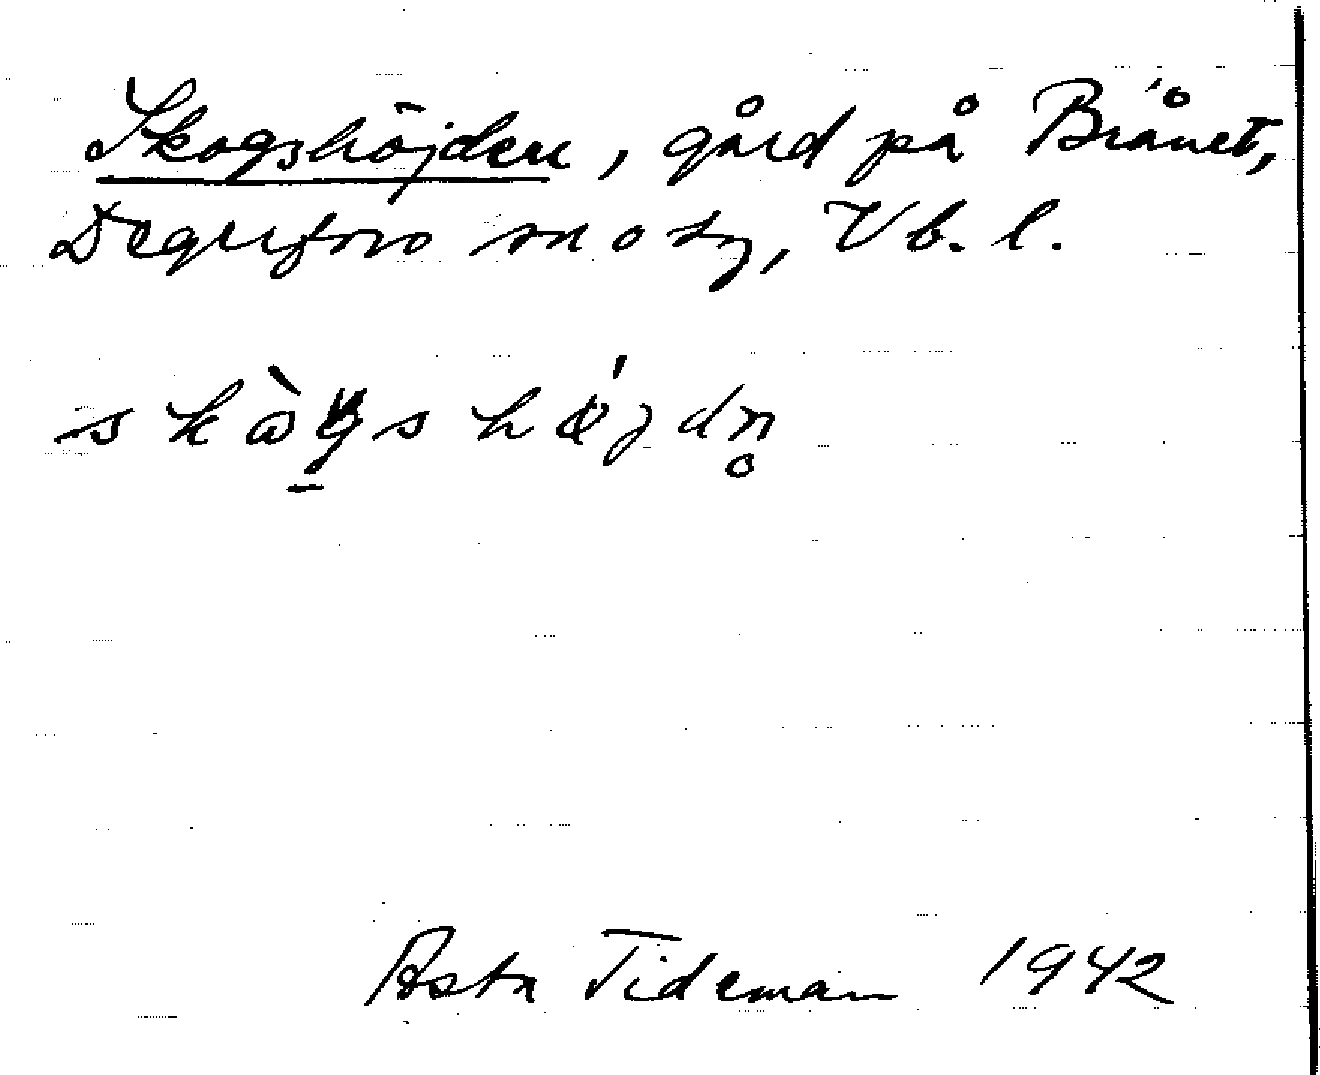 Skogshöjden, gård på Brånet,
Degerfors sn o sg, Vb. l.
Asta Tideman 1942